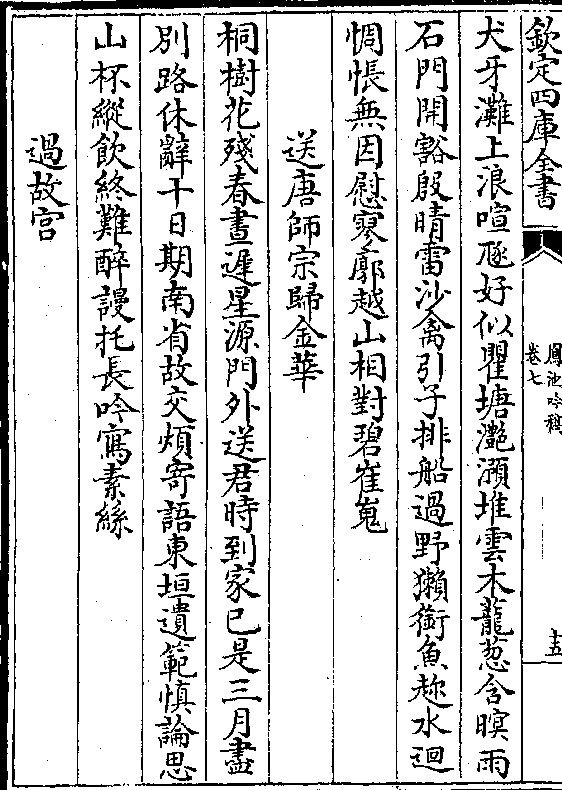 欽定四庫全書
鳳池吟稿
卷七
十五
犬牙灘上浪喧豗好似瞿塘灧澦堆雲木蘢葱含暝雨
石門開豁殷晴雷沙禽引子排船過野獺銜魚趂水迴
惆悵無因慰寥廓越山相對碧崔嵬
送唐師宗歸金華
桐樹花殘春晝遲星源門外送君時到家已是三月盡
別路休辭十日期南省故交煩寄語東垣遺範慎論思
山杯縱飲終難醉謾托長吟寫素絲
過故宫